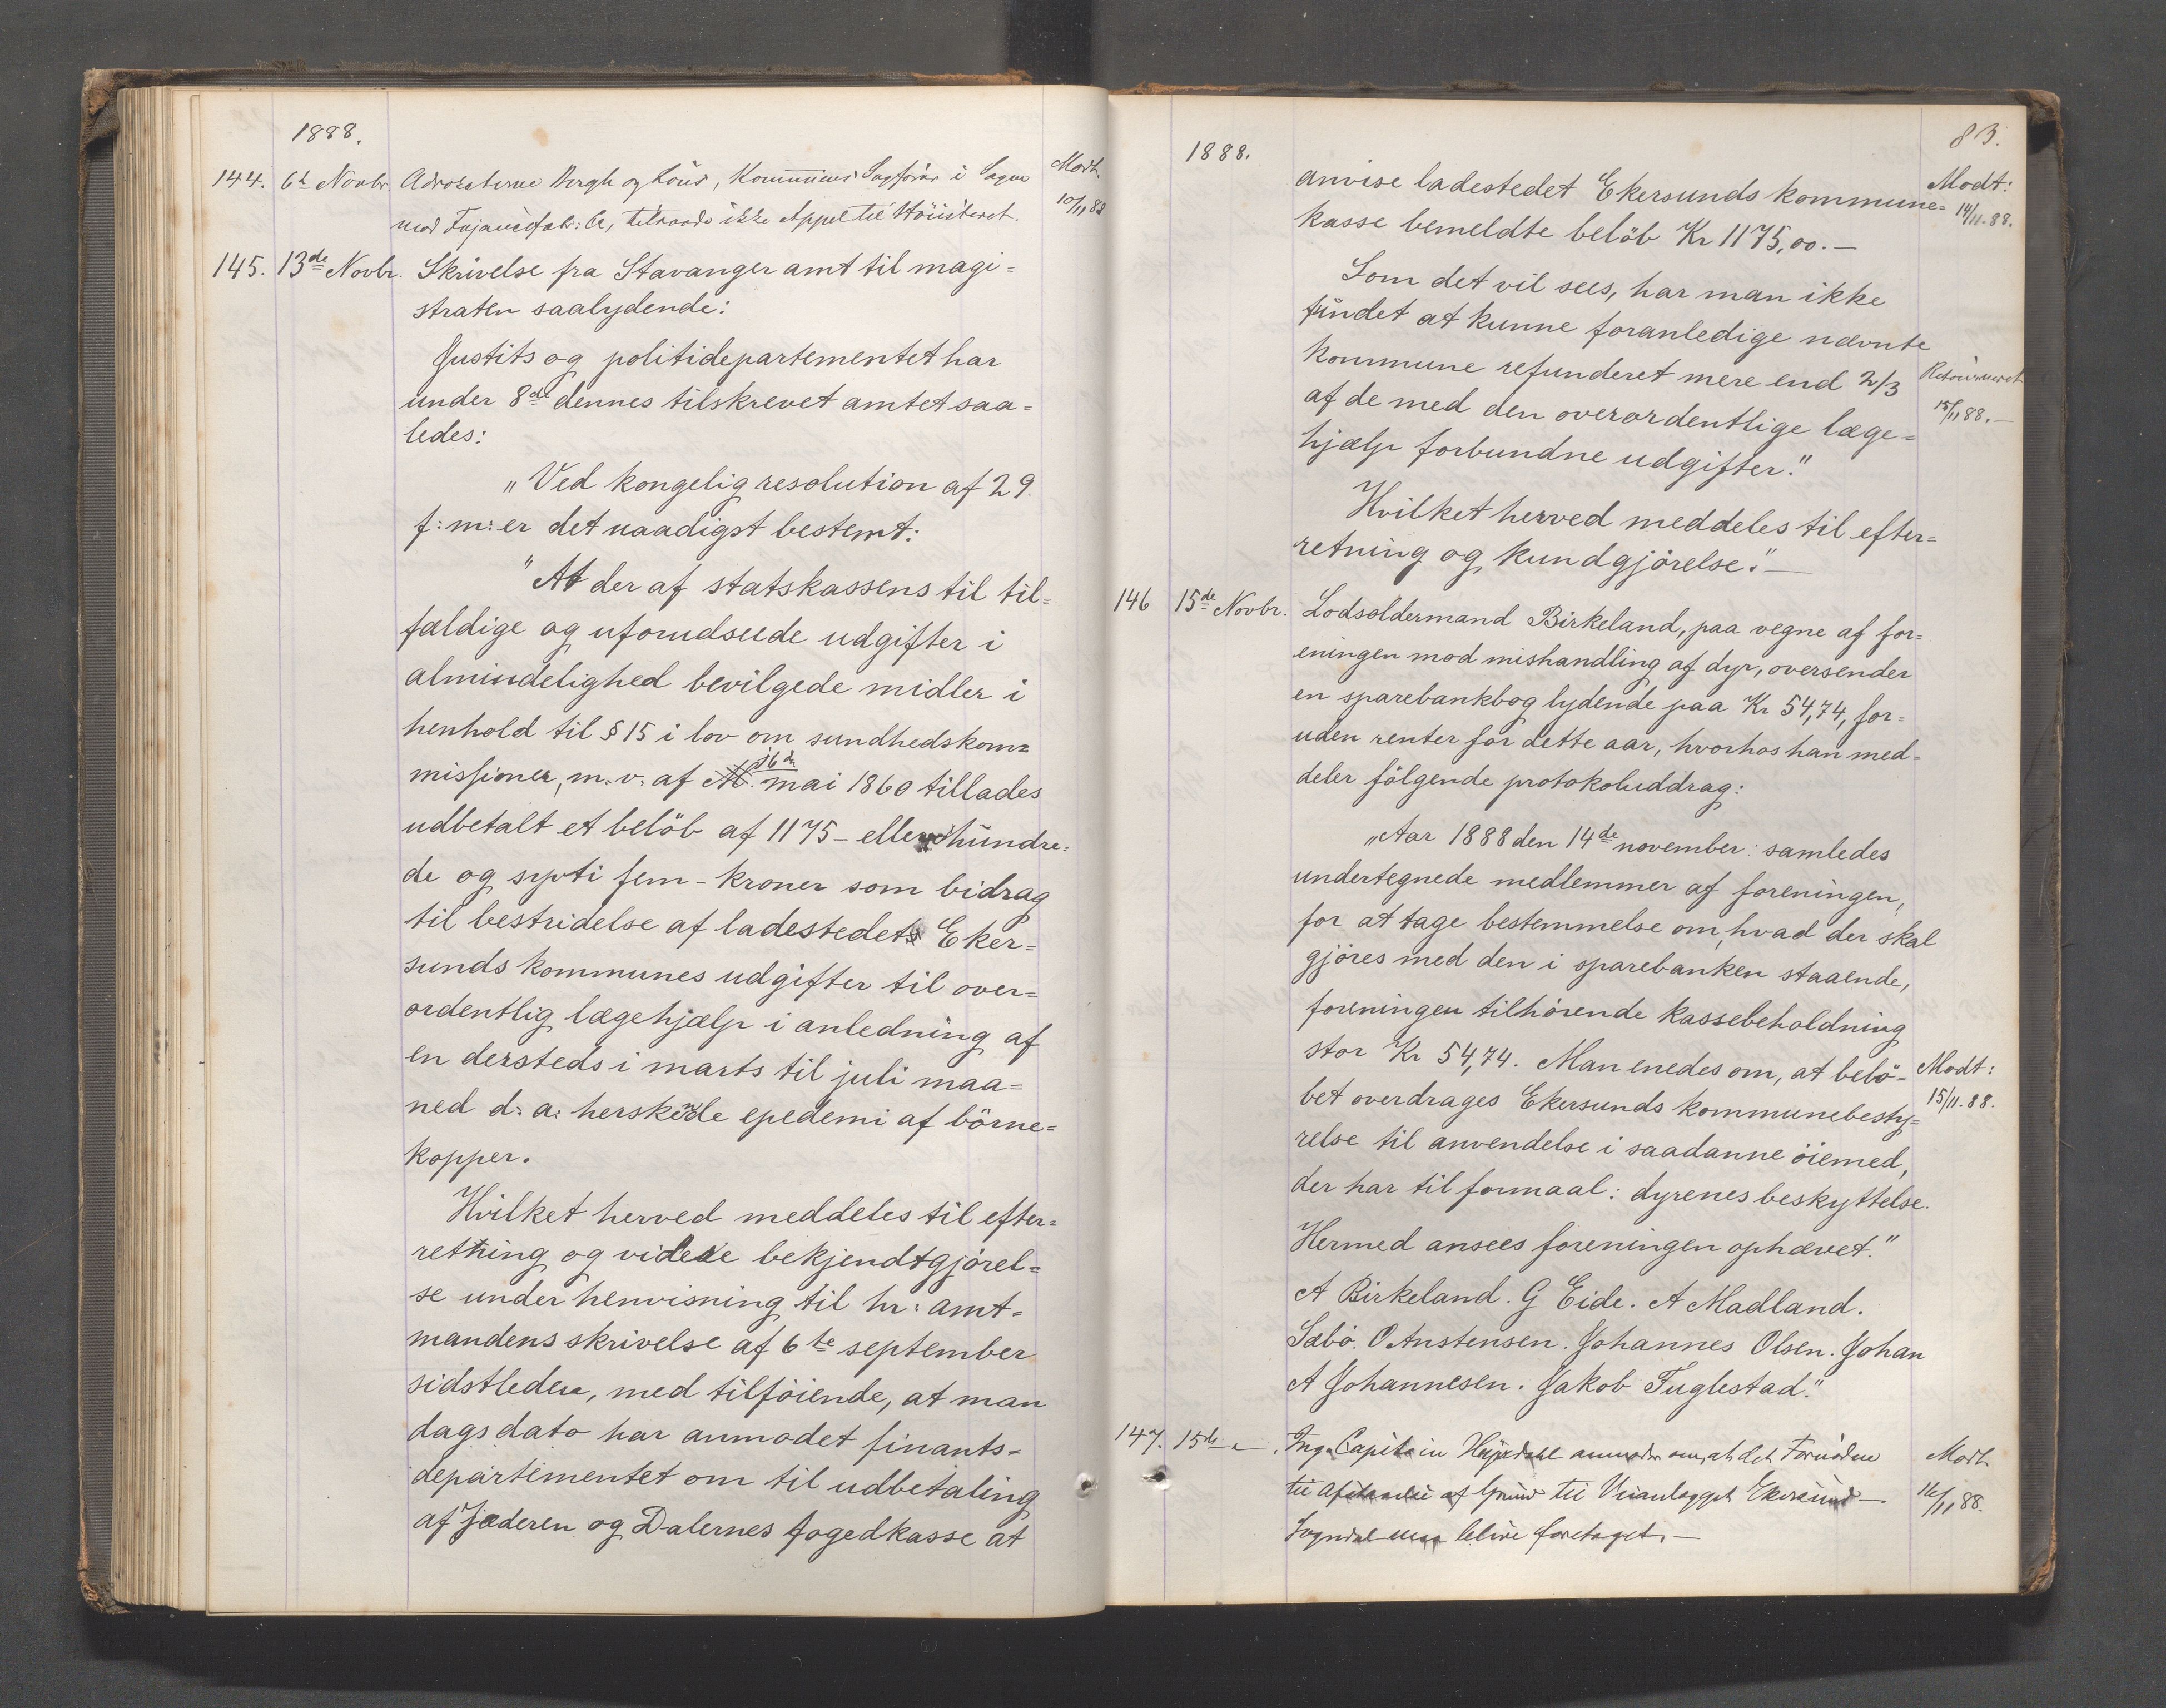 1888.
144. 6te Novbr. Advokaterne Bergh og Lous, Kommunens Sagförer i Sagen Modt
mod Fajancefabr: Co, tilraade ikke Appel til Höiesteret. 10/11 88
145. 13de Novbr. Skrivelse fra Stavanger amt til magi=
straten saalydende:
Justits og politidepartementet har
under 8de dennes tilskrevet amtet saa=
ledes:
„Ved kongelig resolution af 29
f: m: er det naadigst bestemt:
"At der af statskassens til til=
fældige og uforudseede udgifter i
almindelighed bevilgede midler i
henhold til § 15 i lov om sundhedskom=
missioner, m. v. af 16de mai 1860 tillades
udbetalt et belöb af 1175 - ellevehundre=
de og sytti fem - kroner som bidrag
til bestridelse af ladestedet Eker=
sunds kommunes udgifter til over=
ordentlig lægehjælp i anledning af
en dersteds i marts til juli maa=
ned d: a: herskede epedemi af börne=
kopper.
Hvilket herved meddeles til efter=
retning og videre bekjendtgjörel=
se under henvisning til hr: amt=
mandens skrivelse af 6te september
sidstleden, med tilföiende, at man
dags dato har anmodet finants=
departementet om til udbetaling
af Jæderen og Dalernes fogedkasse at
83.
1888.
anvise ladestedet Ekersunds kommune= Modt:
kasse bemeldte belöb Kr 1175,00.— 14/11.88.
Som det vil sees, har man ikke
fundet at kunne foranledige nævnte
kommune refunderet mere end 2/3 Retourneret
af de med den overordentlige læge= 15/11 88.—
hjælp forbundne udgifter."
Hvilket herved meddeles til efter=
retning og kundgjörelse."—
146 15de Novbr. Lodsoldermand Birkeland, paa vegne af for=
eningen mod mishandling af dyr, oversender
en sparebankbog lydende paa Kr 54,74, for=
uden renter for dette aar, hvorhos han med=
deler fölgende protokoluddrag:
„Aar 1888 den 14de november: samledes
undertegnede medlemmer af foreningen,
for at tage bestemmelse om, hvad der skal
gjöres med den i sparebanken staaende,
foreningen tilhörende kassebeholdning
stor Kr 54,74. Man enedes om, at belö= Modt:
bet overdrages Ekersunds kommunebesty= 15/11.88.
relse til anvendelse i saadanne öiemed,
der har til formaal: dyrenes beskyttelse.
Hermed ansees foreningen ophævet."
A Birkeland. G Eide. A Madland.
Sæbö. O Anstensen. Johannes Olsen. Johan
A Johannesen. Jakob Fuglestad."
147. 15de — Ing. Capitain anmoder om, at det Fornödne Modt
til Afstaaelse af Grund til Veianlægget Ekersund — 16/11 88.
Sogndal maa blive foretaget.—